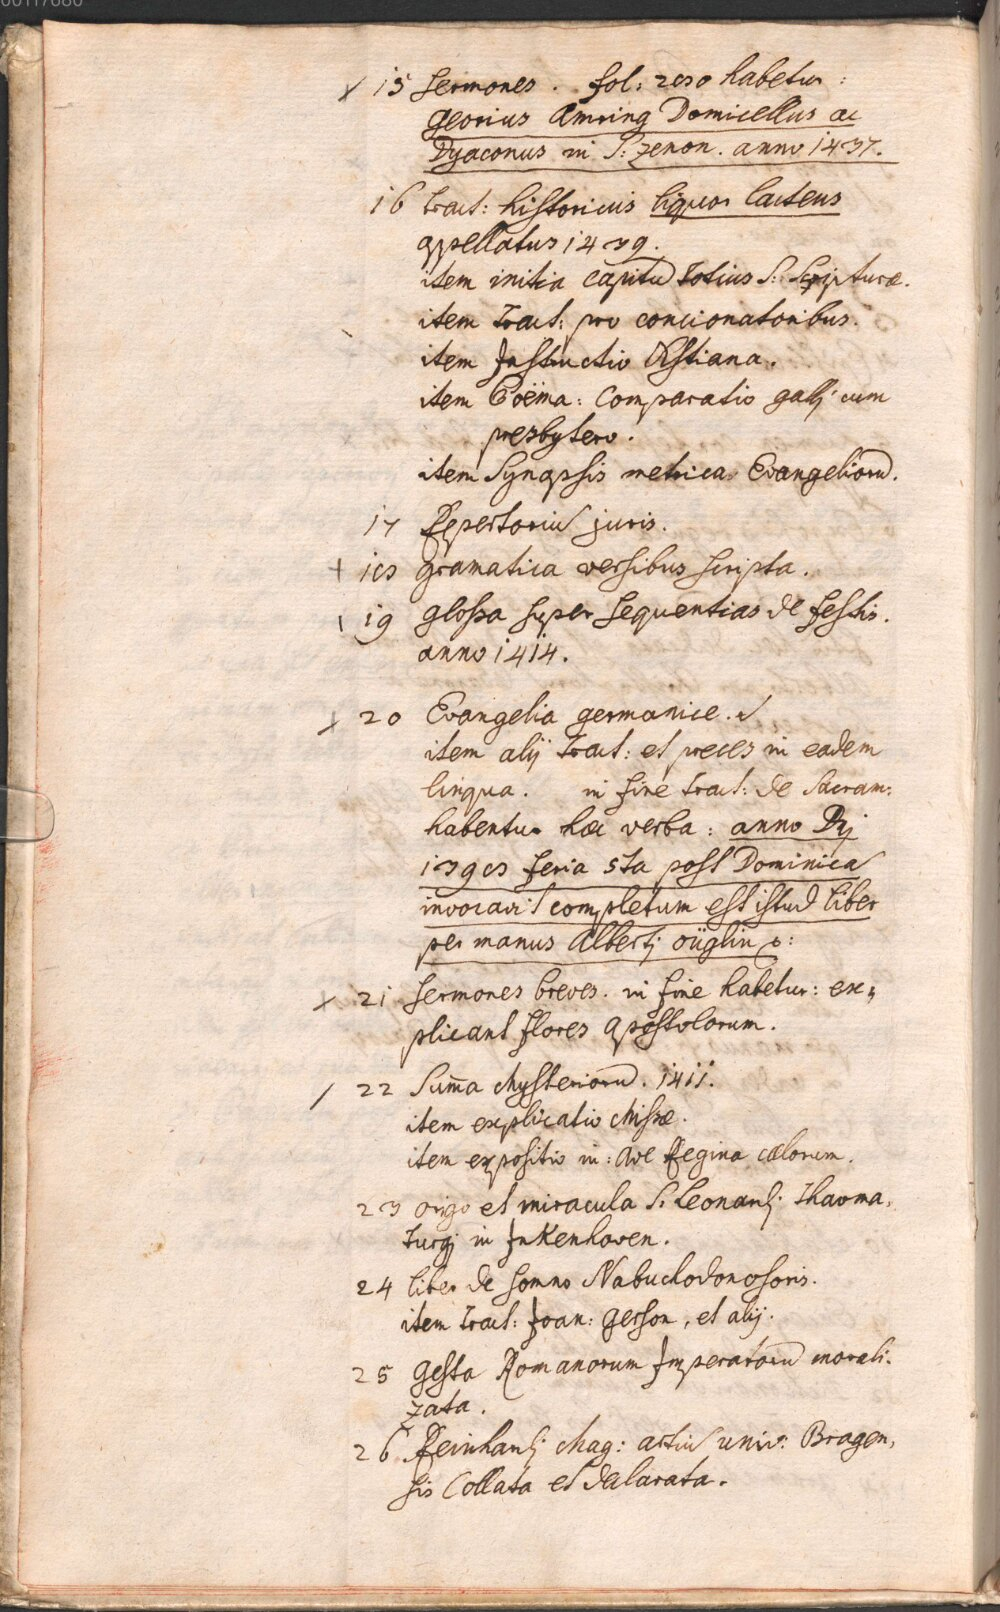 x 15 Sermones. fol: 280 habetur:
Georius Amring Domicellus ac
Dyaconus in S: Zenon. anno 1437.
16 tract: historicus liquor lacteus
appellatus 1439.
item initia capitū totius S: Scripturæ.
item Tract: pro concionatoribus.
item Instructio Xstiana.
item Poëma: Comparatio gallj cum
presbytero.
item Synopsis metrica Evangeliorū.
17 Repertoriū juris.
+ 18 gramatica versibus scripta.
19 glossa super Sequentias de festis.
anno 1414.
x 20 Evangelia germanice.
item alij tract: et preces in eadem
lingua. in fine tract: de Sacram:
habentur hæc verba: anno Dnj
1398 feria 5ta post Dominicā
invocavit completum est istud liber
per manus Albertj oüglin
x 21 Sermones breves. in fine habetur: ex,
plicant flores apostolorum.
/ 22 Suma Mysteriorū. 1411.
item explicatio Missæ.
item expositio in: Ave Regina cælorum.
23 origo et miracula S. Leonardj Thauma,
turgj in Inkenhoven.
24 liber de somno Nabuchodonosoris.
item Tract: Joan: Gerson, et alij.
25 gesta Romanorum Imperatorū morali.
zata.
26 Reinhardj Mag: artiū univ: Bragen,
sis Collata et declarata.